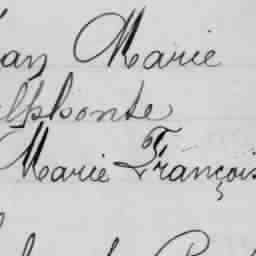 an Marie
lphonte
Marie François